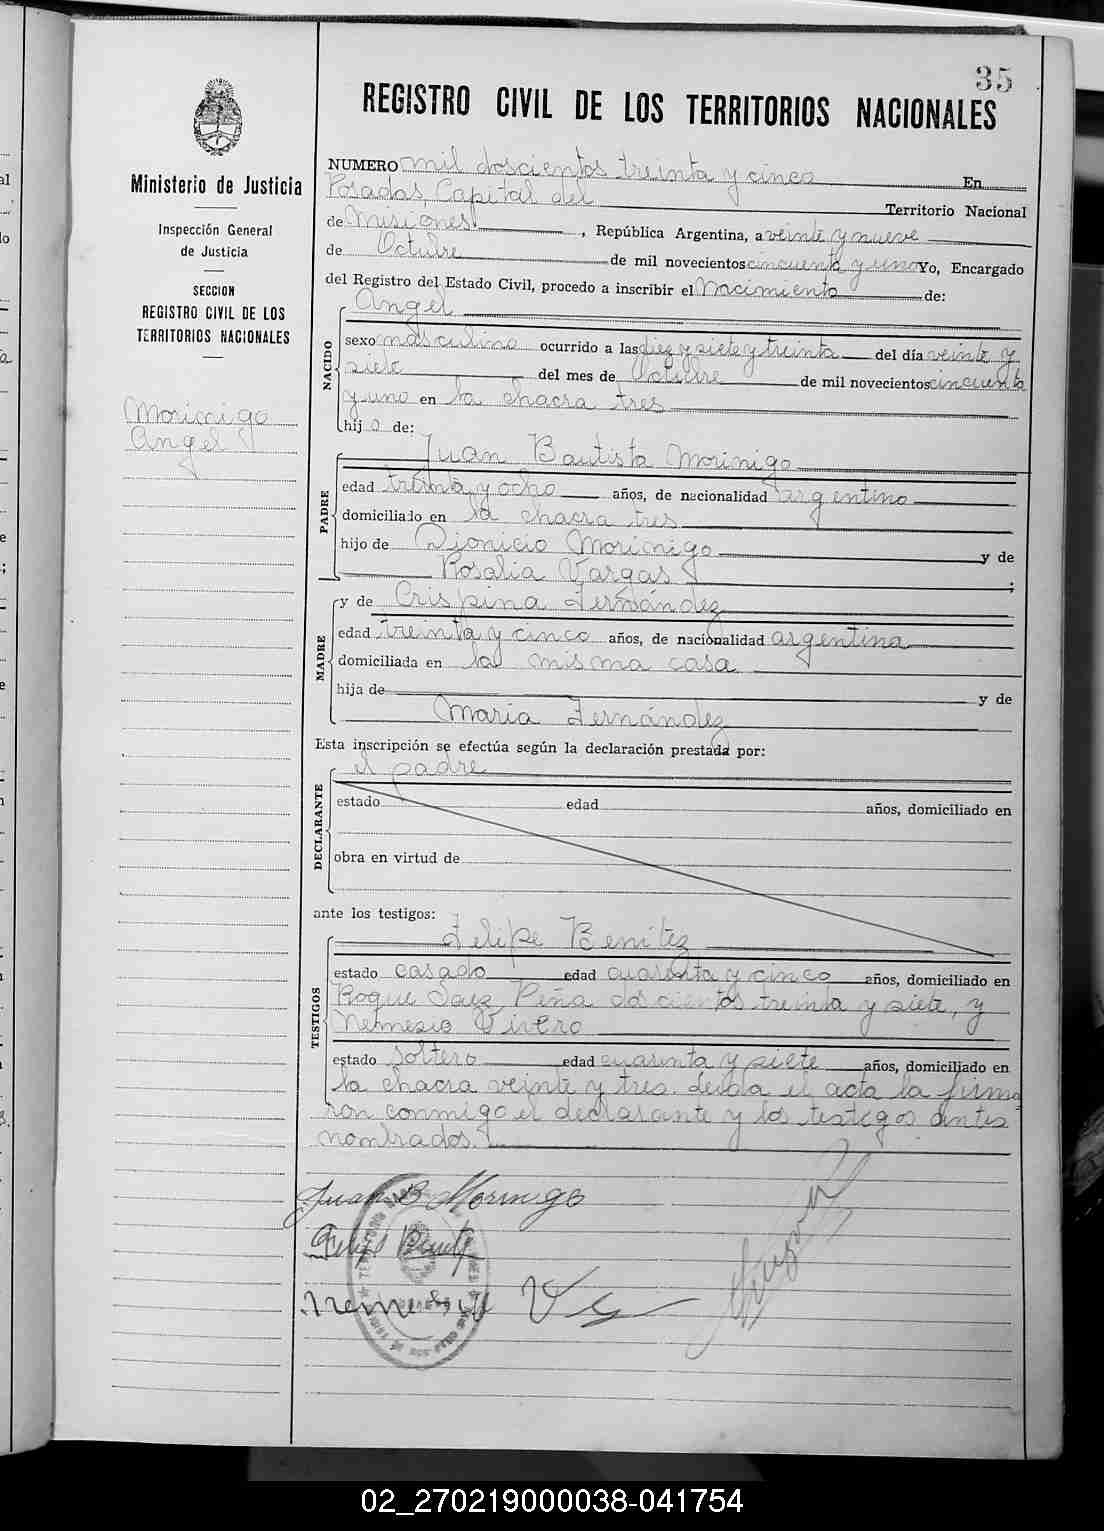 35
REGISTRO CIVIL DE LOS TERRITORIOS NACIONALES
Ministerio de Justicia
Inspección General
de Justicia
SECCION
REGISTRO CIVIL DE LOS
TERRITORIOS NACIONALES
Morinigo
Angel
NUMERO mil doscientos treinta y cinco En
Posadas, Capital del Territorio Nacional
de Misiones, República Argentina, a veinte y nueve
de Octubre de mil novecientos cincuenta y uno Yo, Encargado
del Registro del Estado Civil, procedo a inscribir el Nacimiento de:
NACIDO
Angel
sexo masculino ocurrido a las diez y siete y treinta del día veinte y
siete del mes de Octubre de mil novecientos cincuenta
y uno en la chacra tres
hijo de:
PADRE
Juan Bautista Morinigo
edad treinta y ocho años, de nacionalidad argentino
domiciliado en la chacra tres
hijo de Dionicio Morinigo y de
Rosalia Vargas ;
MADRE
y de Crispina Fernández
edad treinta y cinco años, de nacionalidad argentina
domiciliada en la misma casa
hija de y de
Maria Fernández
Esta inscripción se efectúa según la declaración prestada por:
DECLARANTE
el padre
estado edad años, domiciliado en
obra en virtud de
ante los testigos:
TESTIGOS
Felipe Benítez
estado casado edad cuarenta y cinco años, domiciliado en
Roque Saez Peña doscientos treinta y siete, y
Nemesio Vivero
estado soltero edad cuarenta y siete años, domiciliado en
la chacra veinte y tres. Leida el acta la firma
ron conmigo el declarante y los testigos antes
nombrados.
Juan B Morinigo
Felipe Benitez
Nemesio V
02_270219000038-041754